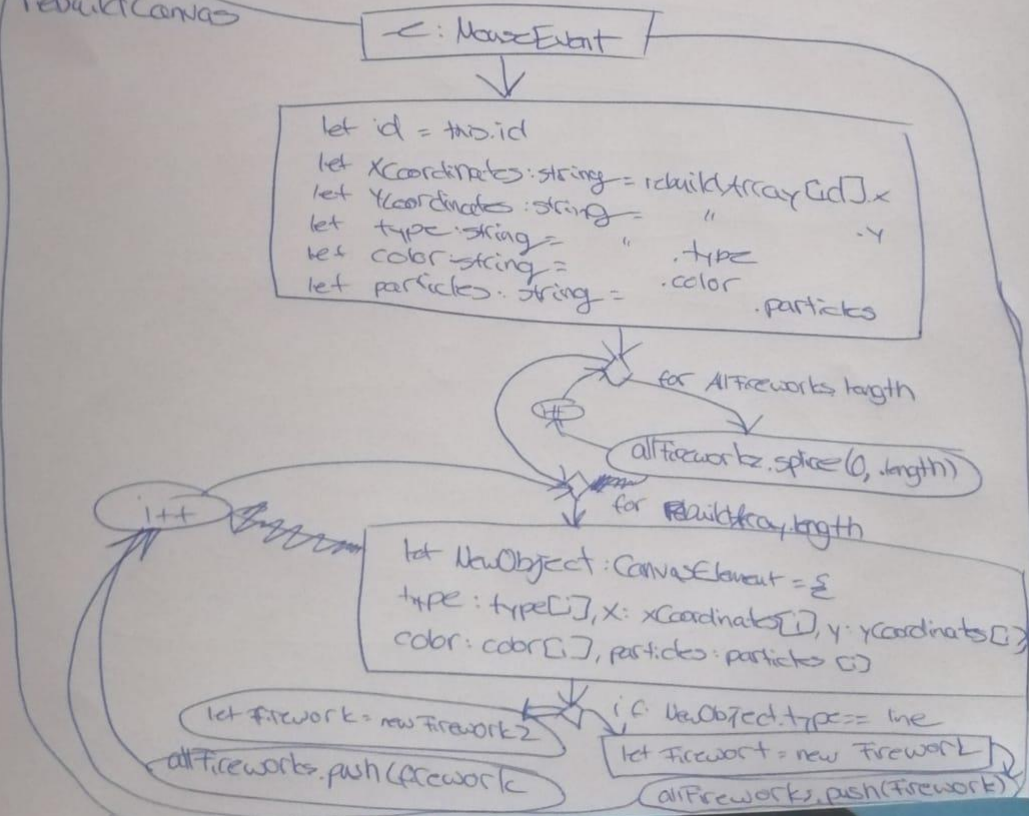 rebuildCanvas
e: MouseEvent
let id = this.id
let XCoordinates:string = rebuildArray[id].x
let YCoordinates:string = " .Y
let type:string = " .type
let color:string = .color
let particles: string = .particles
for AllFireworks length
allfireworks.splice(0, .length)
i++
for rebuildArray.length
let NewObject : CanvasElement = {
type : type[i], X: xCoordinates[i], y: yCoordinates[i]
color: color[i], particles: particles [i]
if NewObject.type == line
let firework = new Firework2
let Firework = new Firework
allFireworks.push(firework
allFireworks.push(Firework)